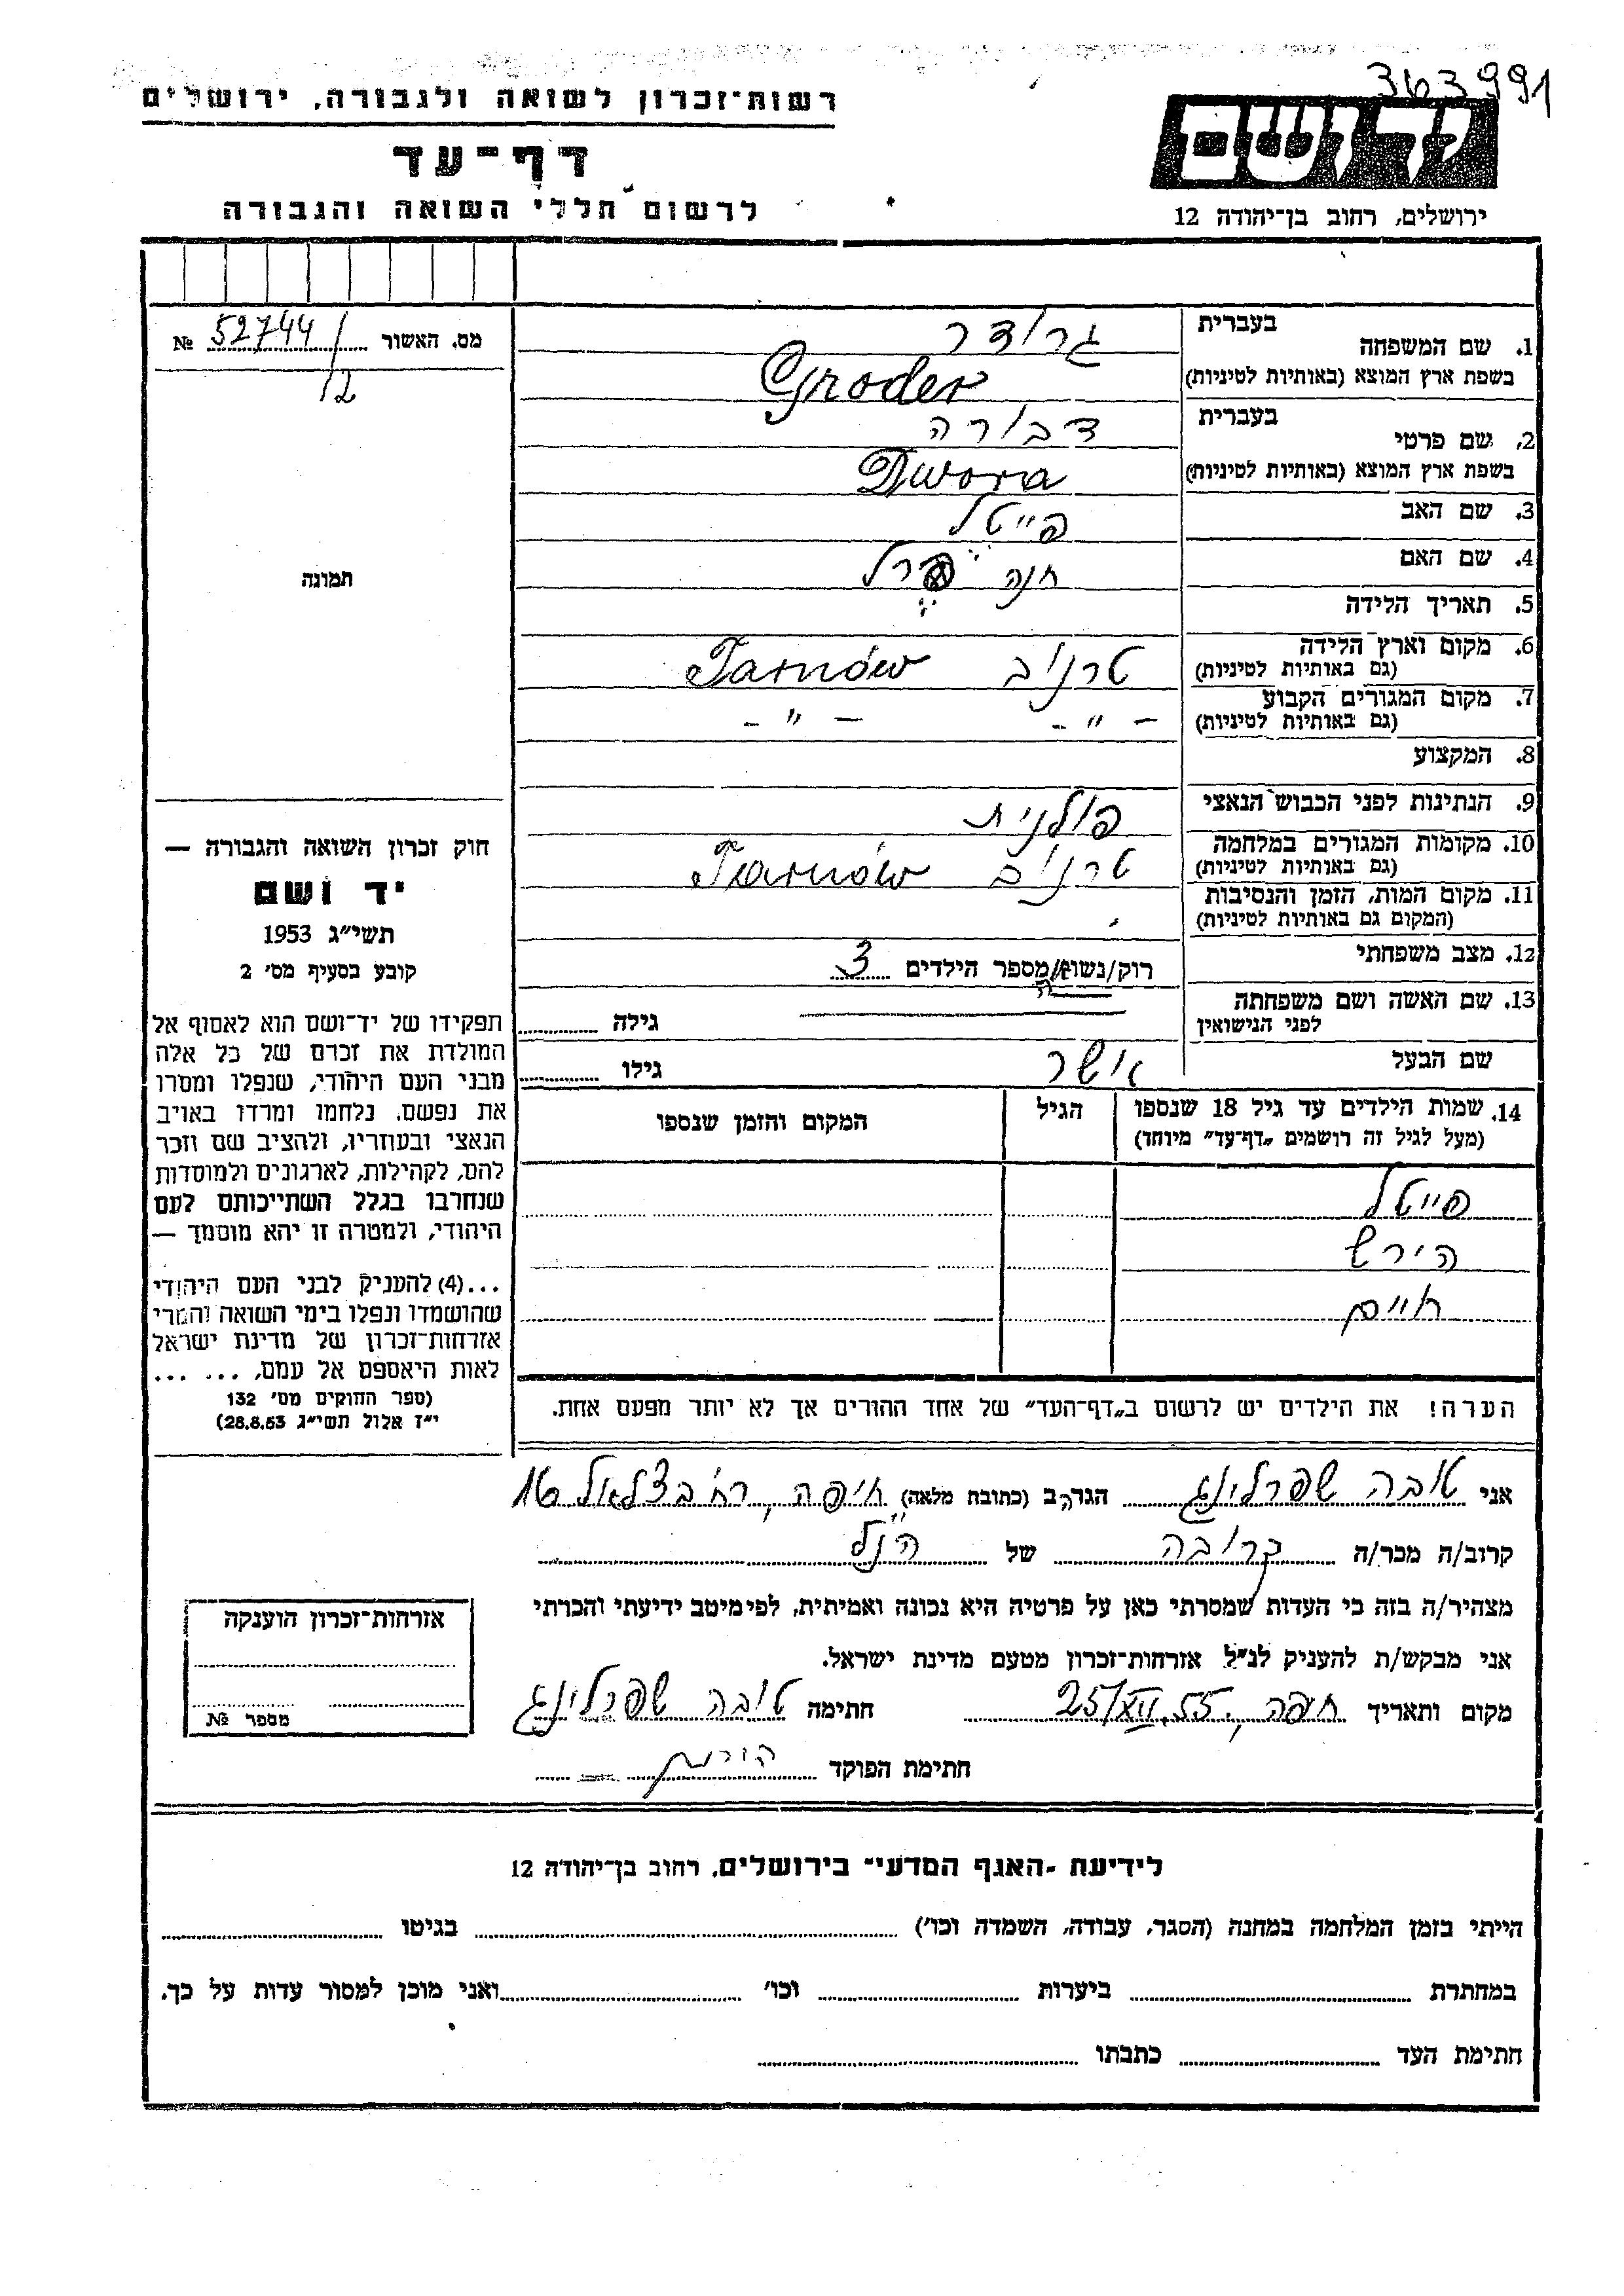 363991
רשות־זכרון לשואה ולגבורה, ירושלים
דף־עד
לרשום חללי השואה והגבורה
ידושם
ירושלים, רחוב בן־יהודה 12
מס. האשור 52744/ №
12
תמונה
1. שם המשפחה בעברית גרודר
בשפת ארץ המוצא (באותיות לטיניות) Groder
2. שם פרטי בעברית דבורה
בשפת ארץ המוצא (באותיות לטיניות) Dwora
3. שם האב פייטל
4. שם האם חנה פרל
5. תאריך הלידה
6. מקום וארץ הלידה (גם באותיות לטיניות) טרנוב Tarnów
7. מקום המגורים הקבוע (גם באותיות לטיניות) – " – – " –
8. המקצוע
9. הנתינות לפני הכבוש הנאצי פולנית
10. מקומות המגורים במלחמה (גם באותיות לטיניות) טרנוב Tarnów
11. מקום המות, הזמן והנסיבות (המקום גם באותיות לטיניות)
12. מצב משפחתי רוק/נשוי/ה מספר הילדים 3
13. שם האשה ושם משפחתה לפני הנישואין גילה
שם הבעל אשר גילו
14. שמות הילדים עד גיל 18 שנספו הגיל המקום והזמן שנספו
(מעל לגיל זה רושמים „דף־עד" מיוחד)
פייטל
הירש
חיים
הערה! את הילדים יש לרשום ב„דף־העד" של אחד ההורים אך לא יותר מפעם אחת.
חוק זכרון השואה והגבורה —
יד ושם
תשי"ג 1953
קובע בסעיף מס׳ 2
תפקידו של יד־ושם הוא לאסוף אל
המולדת את זכרם של כל אלה
מבני העם היהודי, שנפלו ומסרו
את נפשם, נלחמו ומרדו באויב
הנאצי ובעוזריו, ולהציב שם וזכר
להם, לקהילות, לארגונים ולמוסדות
שנחרבו בגלל השתייכותם לעם
היהודי, ולמטרה זו יהא מוסמך —
...(4) להעניק לבני העם היהודי
שהושמדו ונפלו בימי השואה והמרי
אזרחות־זכרון של מדינת ישראל
לאות היאספם אל עמם, ... ...
(ספר החוקים מס׳ 132
י"ז אלול תשי"ג 28.8.53)
אני טובה שפרלינג הגר/ה ב (כתובת מלאה) חיפה, רח׳ בצלאל 16
קרוב/ה מכר/ה קרובה של הנ"ל
מצהיר/ה בזה כי העדות שמסרתי כאן על פרטיה היא נכונה ואמיתית, לפי מיטב ידיעתי והכרתי
אני מבקש/ת להעניק לנ"ל אזרחות־זכרון מטעם מדינת ישראל.
מקום ותאריך חיפה, 25/XII.55 חתימה טובה שפרלינג
חתימת הפוקד
אזרחות־זכרון הוענקה
מספר №
לידיעת ־האגף המדעי־ בירושלים, רחוב בן־יהודה 12
הייתי בזמן המלחמה במחנה (הסגר, עבודה, השמדה וכו׳) בגיטו
במחתרת ביערות וכו׳ ואני מוכן למסור עדות על כך.
חתימת העד כתבתו